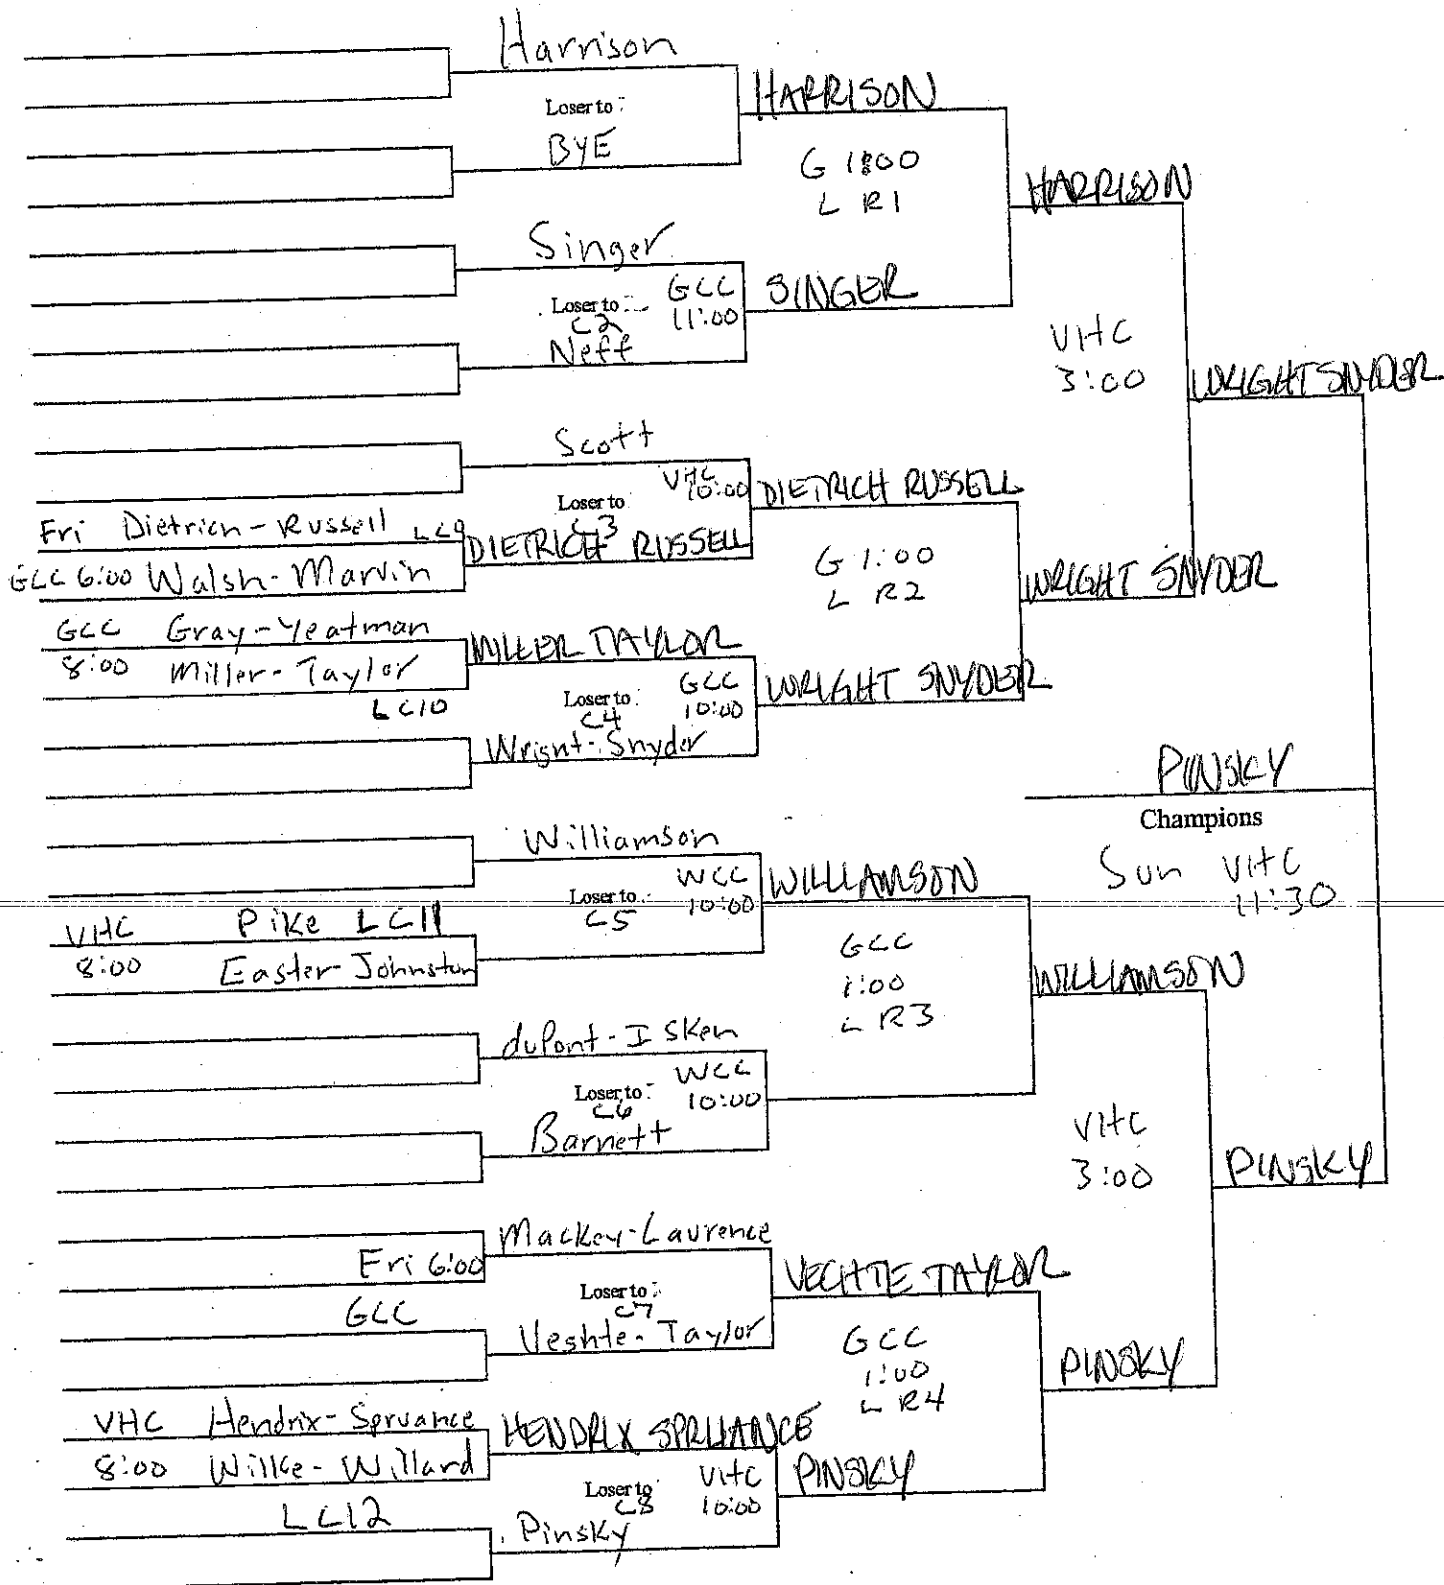 Harrison
Loser to:
BYE
HARRISON
G 1:00
L R1
HARRISON
Singer
Loser to:
C2
GCC
11:00
Neff
SINGER
VHC
3:00
WRIGHT SNYDER
Scott
VHC
10:00
Loser to
C3
DIETRICH RUSSELL
Fri Dietrich-Russell LC9
GCC 6:00 Walsh-Marvin
DIETRICH RUSSELL
G 1:00
L R2
WRIGHT SNYDER
GCC Gray-Yeatman
8:00 Miller-Taylor
LC10
MILLER TAYLOR
Loser to:
C4
GCC
10:00
Wright-Snyder
WRIGHT SNYDER
PINSKY
Champions
Sun VHC
11:30
Williamson
Loser to:
C5
WCC
10:00
WILLIAMSON
VHC Pike LC11
8:00 Easter-Johnston
GCC
1:00
L R3
WILLIAMSON
duPont-Isken
Loser to:
C6
WCC
10:00
Barnett
VHC
3:00
PINSKY
Mackey-Laurence
Fri 6:00
GCC
Loser to:
C7
Veshte-Taylor
VECHTE TAYLOR
GCC
1:00
L R4
PINSKY
VHC Hendrix-Spruance
8:00 Wilke-Willard
LC12
HENDRIX SPRUANCE
Loser to
C8
VHC
10:00
Pinsky
PINSKY